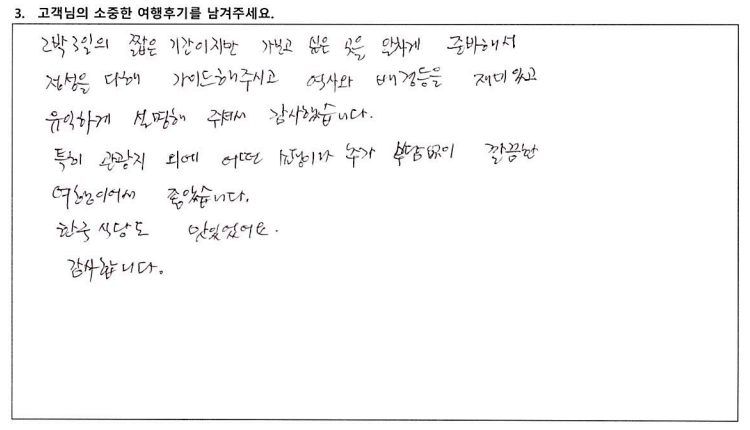 3. 고객님의 소중한 여행후기를 남겨주세요.
2박3일의 짧은 기간이지만 가보고 싶은 곳을 알차게 준비해서
정성을 다해 가이드해주시고 역사와 배경등을 재미있고
유익하게 설명해 주셔서 감사했습니다.
특히 관광지 외에 어떤 쇼핑이나 추가 부담없이 깔끔한
여행이어서 좋았습니다.
한국 식당도 맛있었어요.
감사합니다.